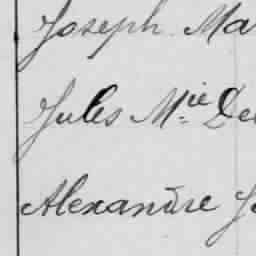 Joseph Ma
Jules Mie De
Alexandre Je